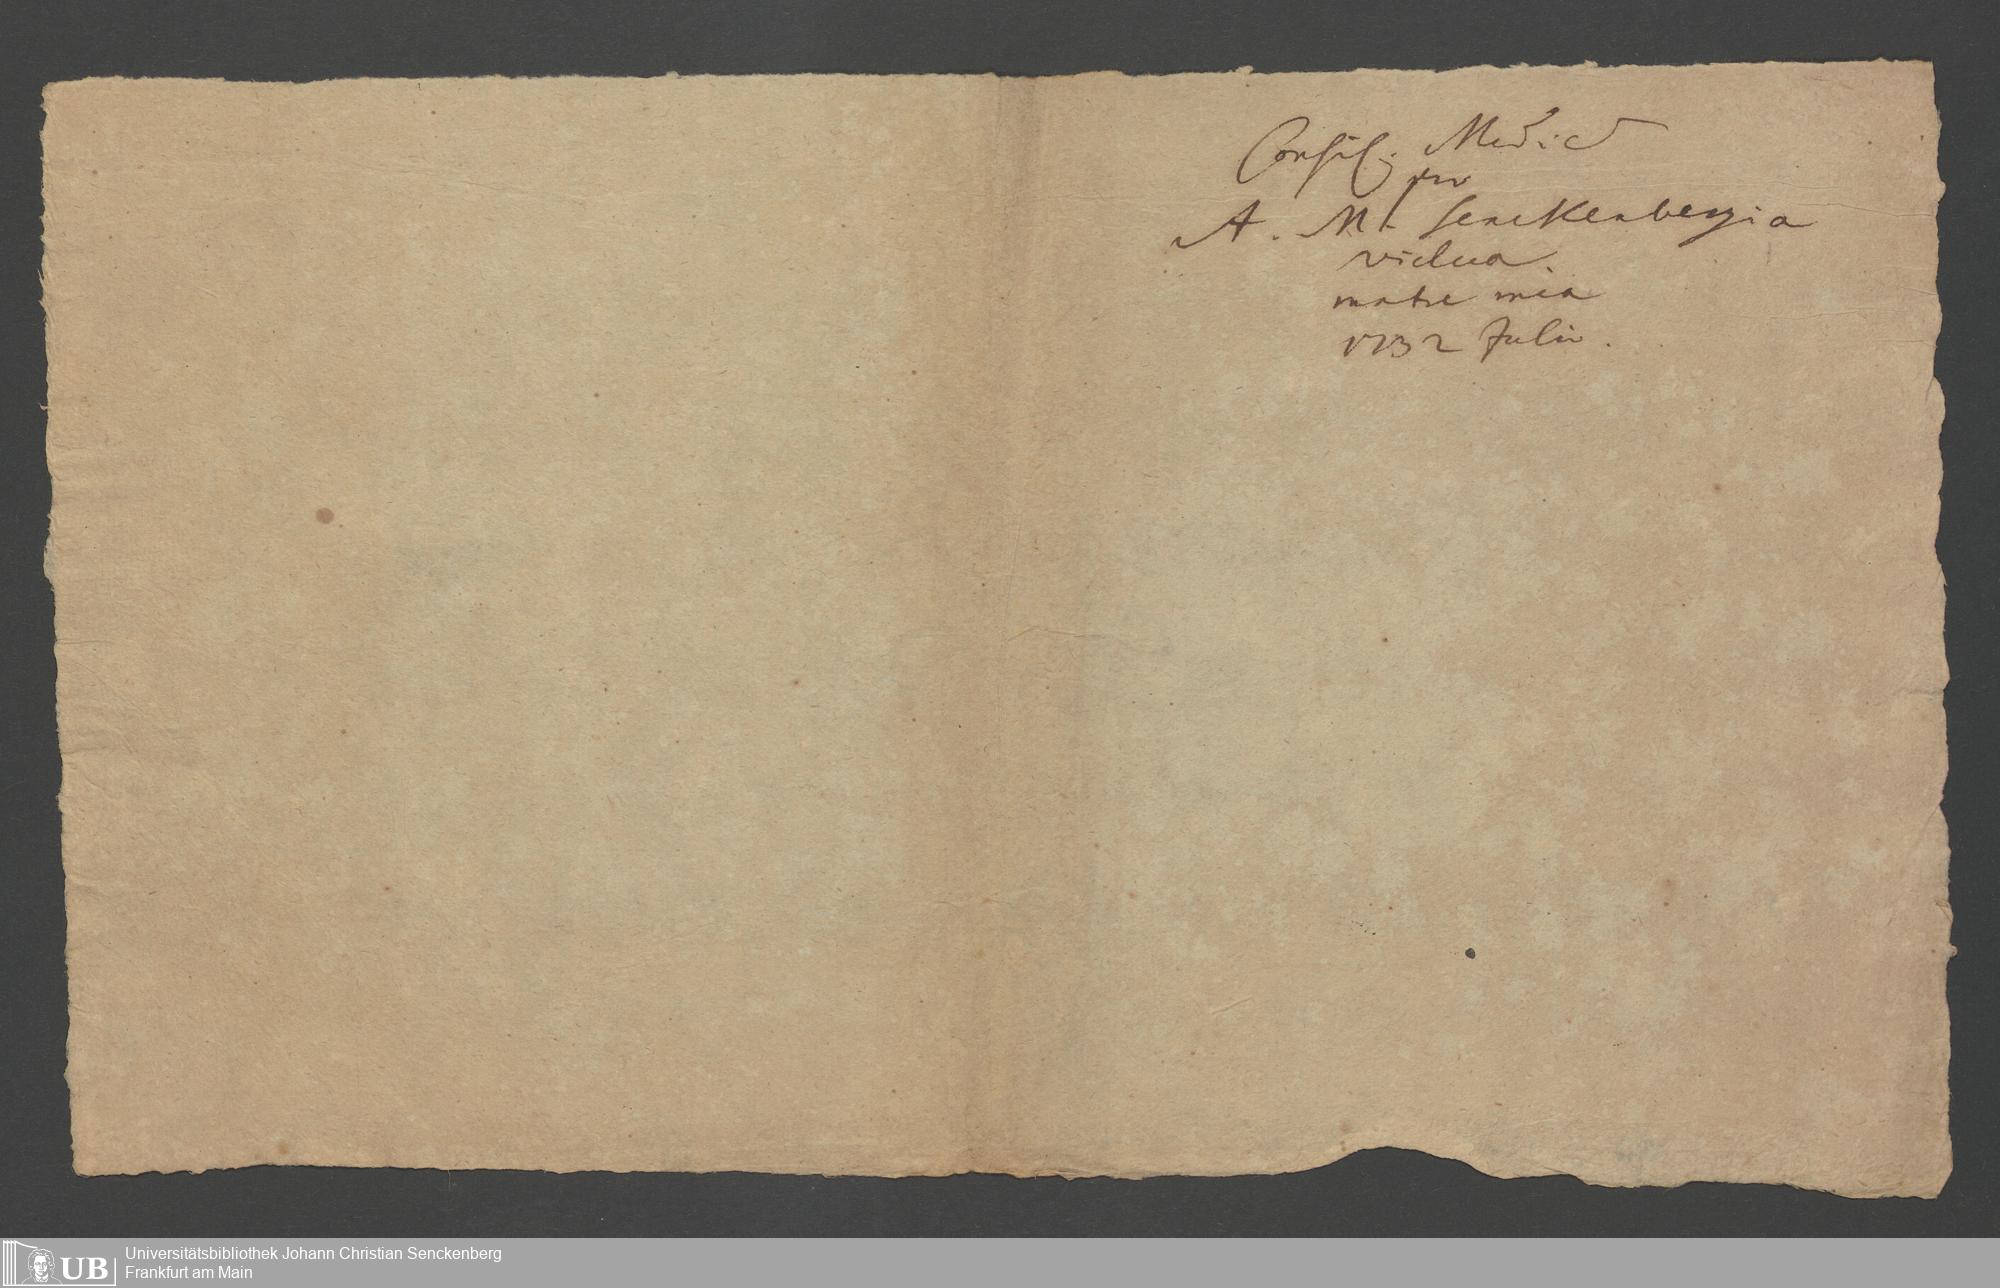 Consil. Medic
pro
A. M. Senckenbergia
vidua.
matre mea
1732 Julio.
UB
Universitätsbibliothek Johann Christian Senckenberg
Frankfurt am Main